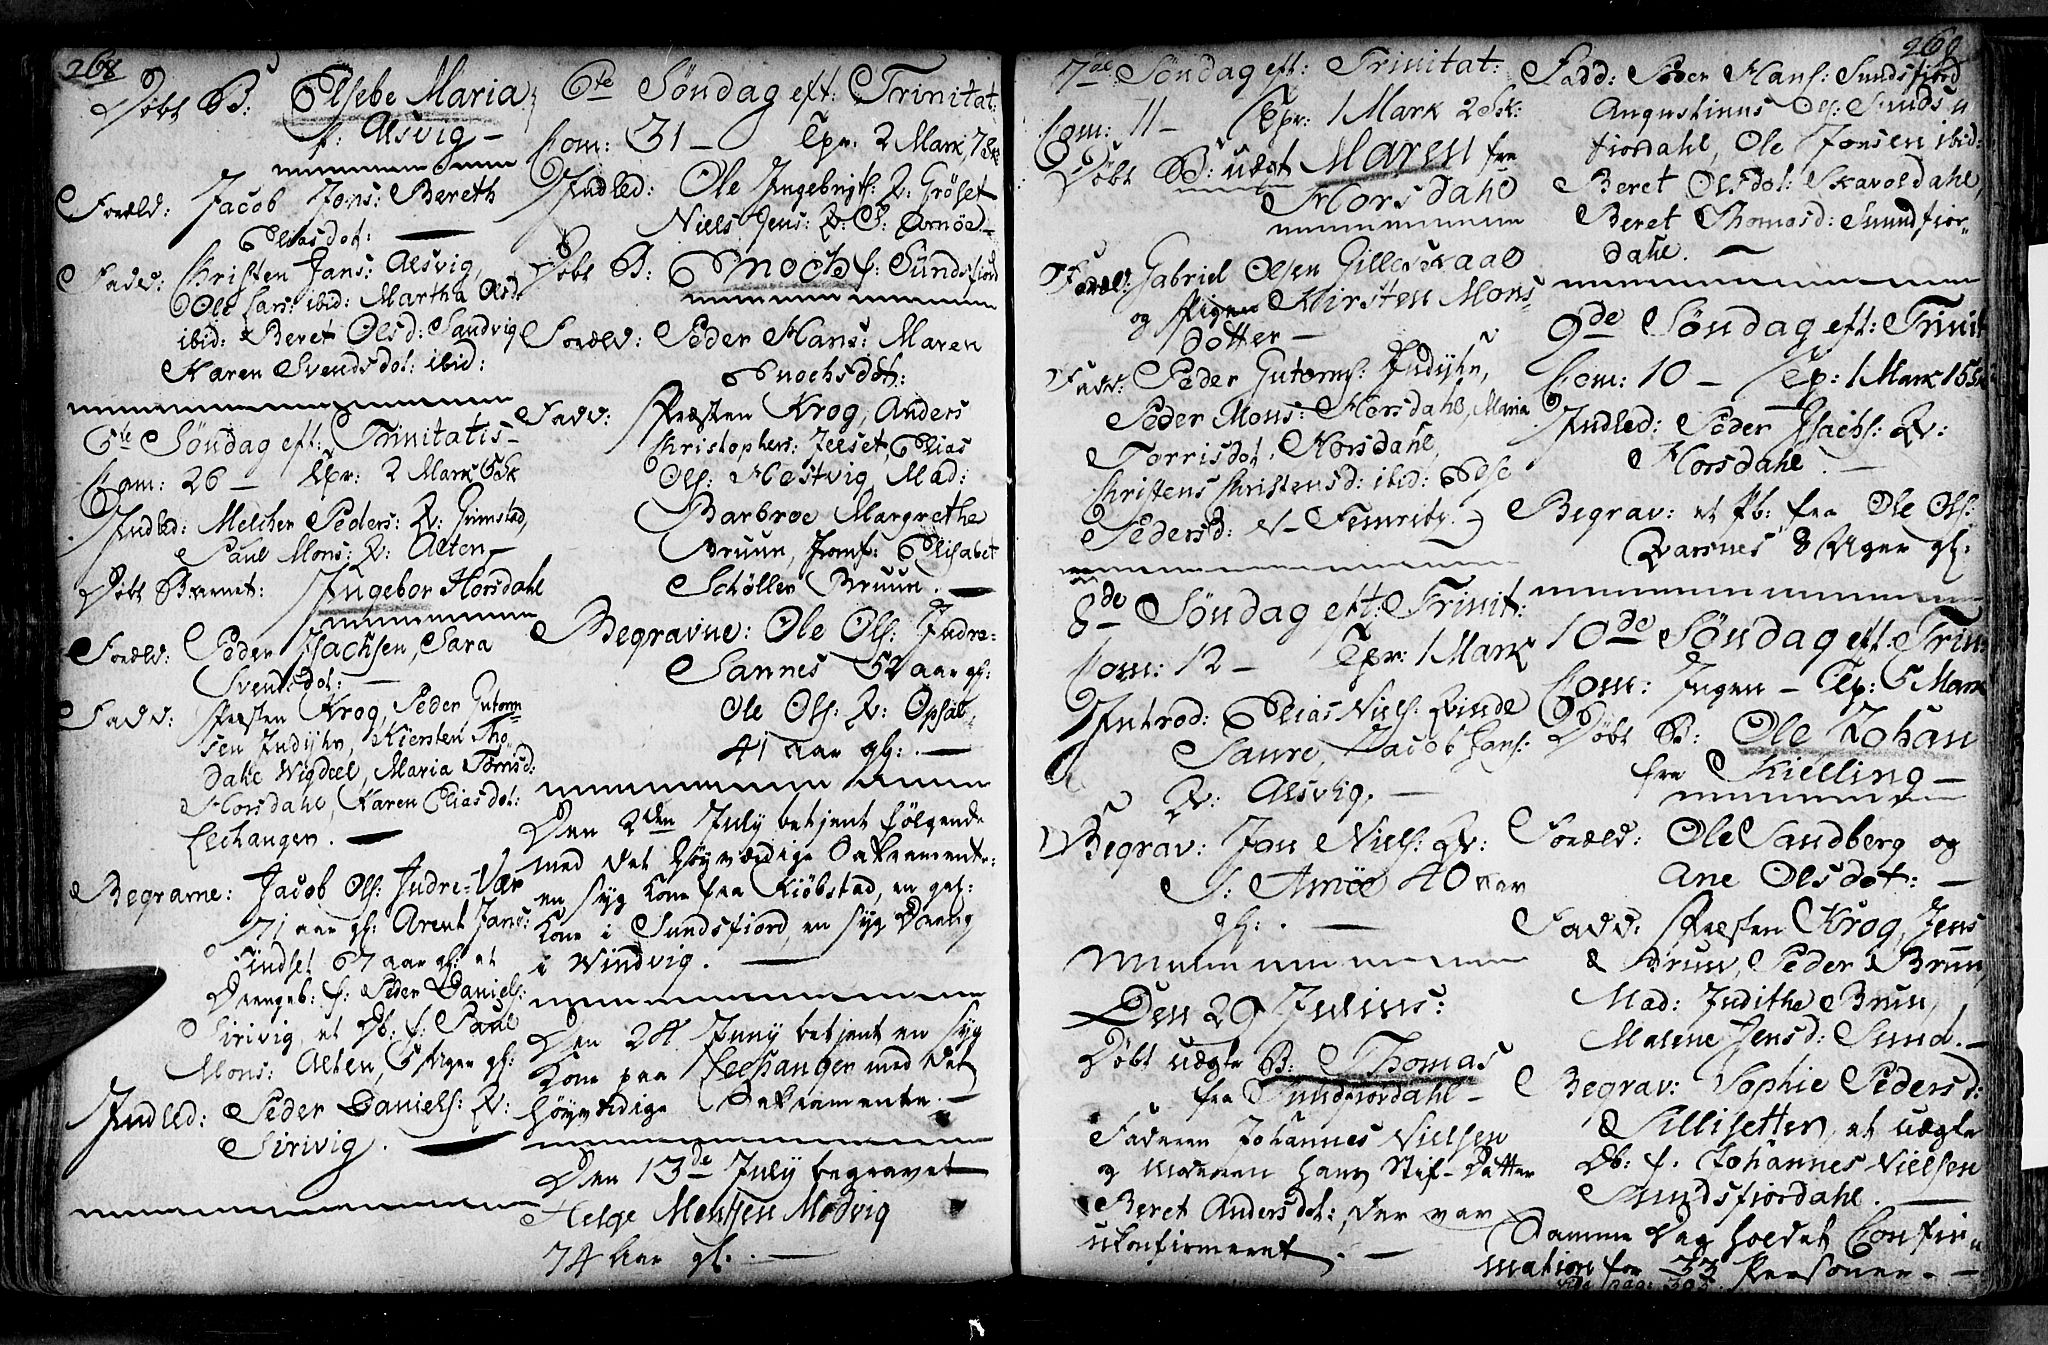 268
Døbt B: Elsebe Maria
f: Alsvig –
Foræld: Jacob Jons: Bereth
Eliasdot:
Fadd: Christen Jans: Alsvig,
Ole Lars: ibid: Martha Olsd:
ibid: Beret Olsd: Sandvig
Karen Svendsdot: ibid:
5te Søndag eft: Trinitatis –
Com: 26 – Tpr: 2 Mark 6 sk
Indled: Melcher Peders: Q: Grimstad,
Paul Mons: Q: Alten –
Døbt Barnet: Ingebor Horsdahl
Foræld: Peder Isachsen, Sara
Svendsdot: –
Fadd: Præsten Krog, Peder Gutorm
sen Indijhr, Kiersten Tho
Dahl Wigdeel, Maria Torrisd:
Horsdahl, Karen Eliasdot:
Leehangen. –
Begravne: Jacob Ols: Indre-Vær
71 aar gl: Arent Jans:
Findset 67 aar gl: et
Drengeb: f: Peder Daniels:
Sirivig, et Db: f: Paul
Mons: Alten, 5 Uger gl:
Indled: Peder Daniels: Q:
Sirivig. –
6te Søndag eft: Trinitat:
Com: 31 – Tpr: 2 Mark, 7 sk
Indled: Ole Ingebrigts: Q: Grøset
Niels Jens: Q: S: Arnøe –
Døbt B: Enoch f: Sundsfiord
Foræld: Peder Hans: Maren
Enochsdot:
Fadd: Præsten Krog, Anders
Christophers: Jelset, Elias
Ols: Hestvig, Mad:
Barbroe Margrethe
Bruun, Jomf: Elisabet
Schøller Bruun. –
Begravne: Ole Ols: Indre-
Sannes 52 aar gl:
Ole Ols: Q: Opsal
41 aar gl: –
Den 2den July betjent følgende
med det høyværdige Sakramente:
en syg Kone fra Kiøbstad, en gl:
Kone i Sundsfiord, en syg Dreng
i Windvig. –
Den 24 Juny betjent en syg
Kone paa Leehangen med det
høyværdige Sakramente. –
Den 13de July begravet
Helge Mentsen Mødvig
74 Aar gl. –
269
7de Søndag eft: Trinitat:
Com: 11 – Tpr: 1 Mark 2 sk:
Døbt B: uægt Maren fra
Horsdahl
Foræld: Gabriel Olsen Gilleskaal
og Pigen Kirsten Mons
dotter –
Fadd: Peder Gutorms: Indijhr,
Peder Mons: Horsdahl, Maria
Torrisdot: Horsdahl,
Christens Christensd: ibid: Else
Pedersd:
8de Søndag eft: Trinit:
Com: 12 – Tpr: 1 Mark
Introd: Elias Niels: Qvinde
Saure, Jacob Jans:
Q: Alsvig. –
Begrav: Jon Niels: Qv:
S: Arnöe 40 aar
gl: –
Den 29 Julius:
Døbt uægte B: Thomas
fra Sundfiordahl –
Faderen Johannes Nielsen
og Moderen hans Stif-Datter
Beret Andersdot: Der var
ukonfirmeret. –
Fadd: Peder Hans: Sundsfiord
Augustinus Ols: Sunds
fiordahl, Ole Jonsen ibid:
Beret Olsdot: Skavoldahl,
Beret Thomasd: Sundfior-
dahl. –
9de Søndag eft: Trinit
Com: 10 – Tp: 1 Mark 15 sk
Indled: Peder Isachs: Q:
Horsdahl. –
Begrav: et Pb: fra Ole Ols:
Qvarsnes 8 Uger gl:
10de Søndag eft: Trin:
Com: Ingen – Tp: 5 Mark
Døbt B: Ole Johan
fra Kielling –
Foræld: Ole Sandberg og
Ane Olsdot: –
Fadd: Præsten Krog, Jens
Bruun, Peder Brun
Mad: Judithe Brun,
Malene Jensd: Sund. –
Begrav: Sophie Pedersd:
Sillisetter, et uægte
Db: f: Johannes Nielsen
Sundsfiordahl. –
Samme Dag holdet Confir
mation for 33 Personer. –
vide pag: 303